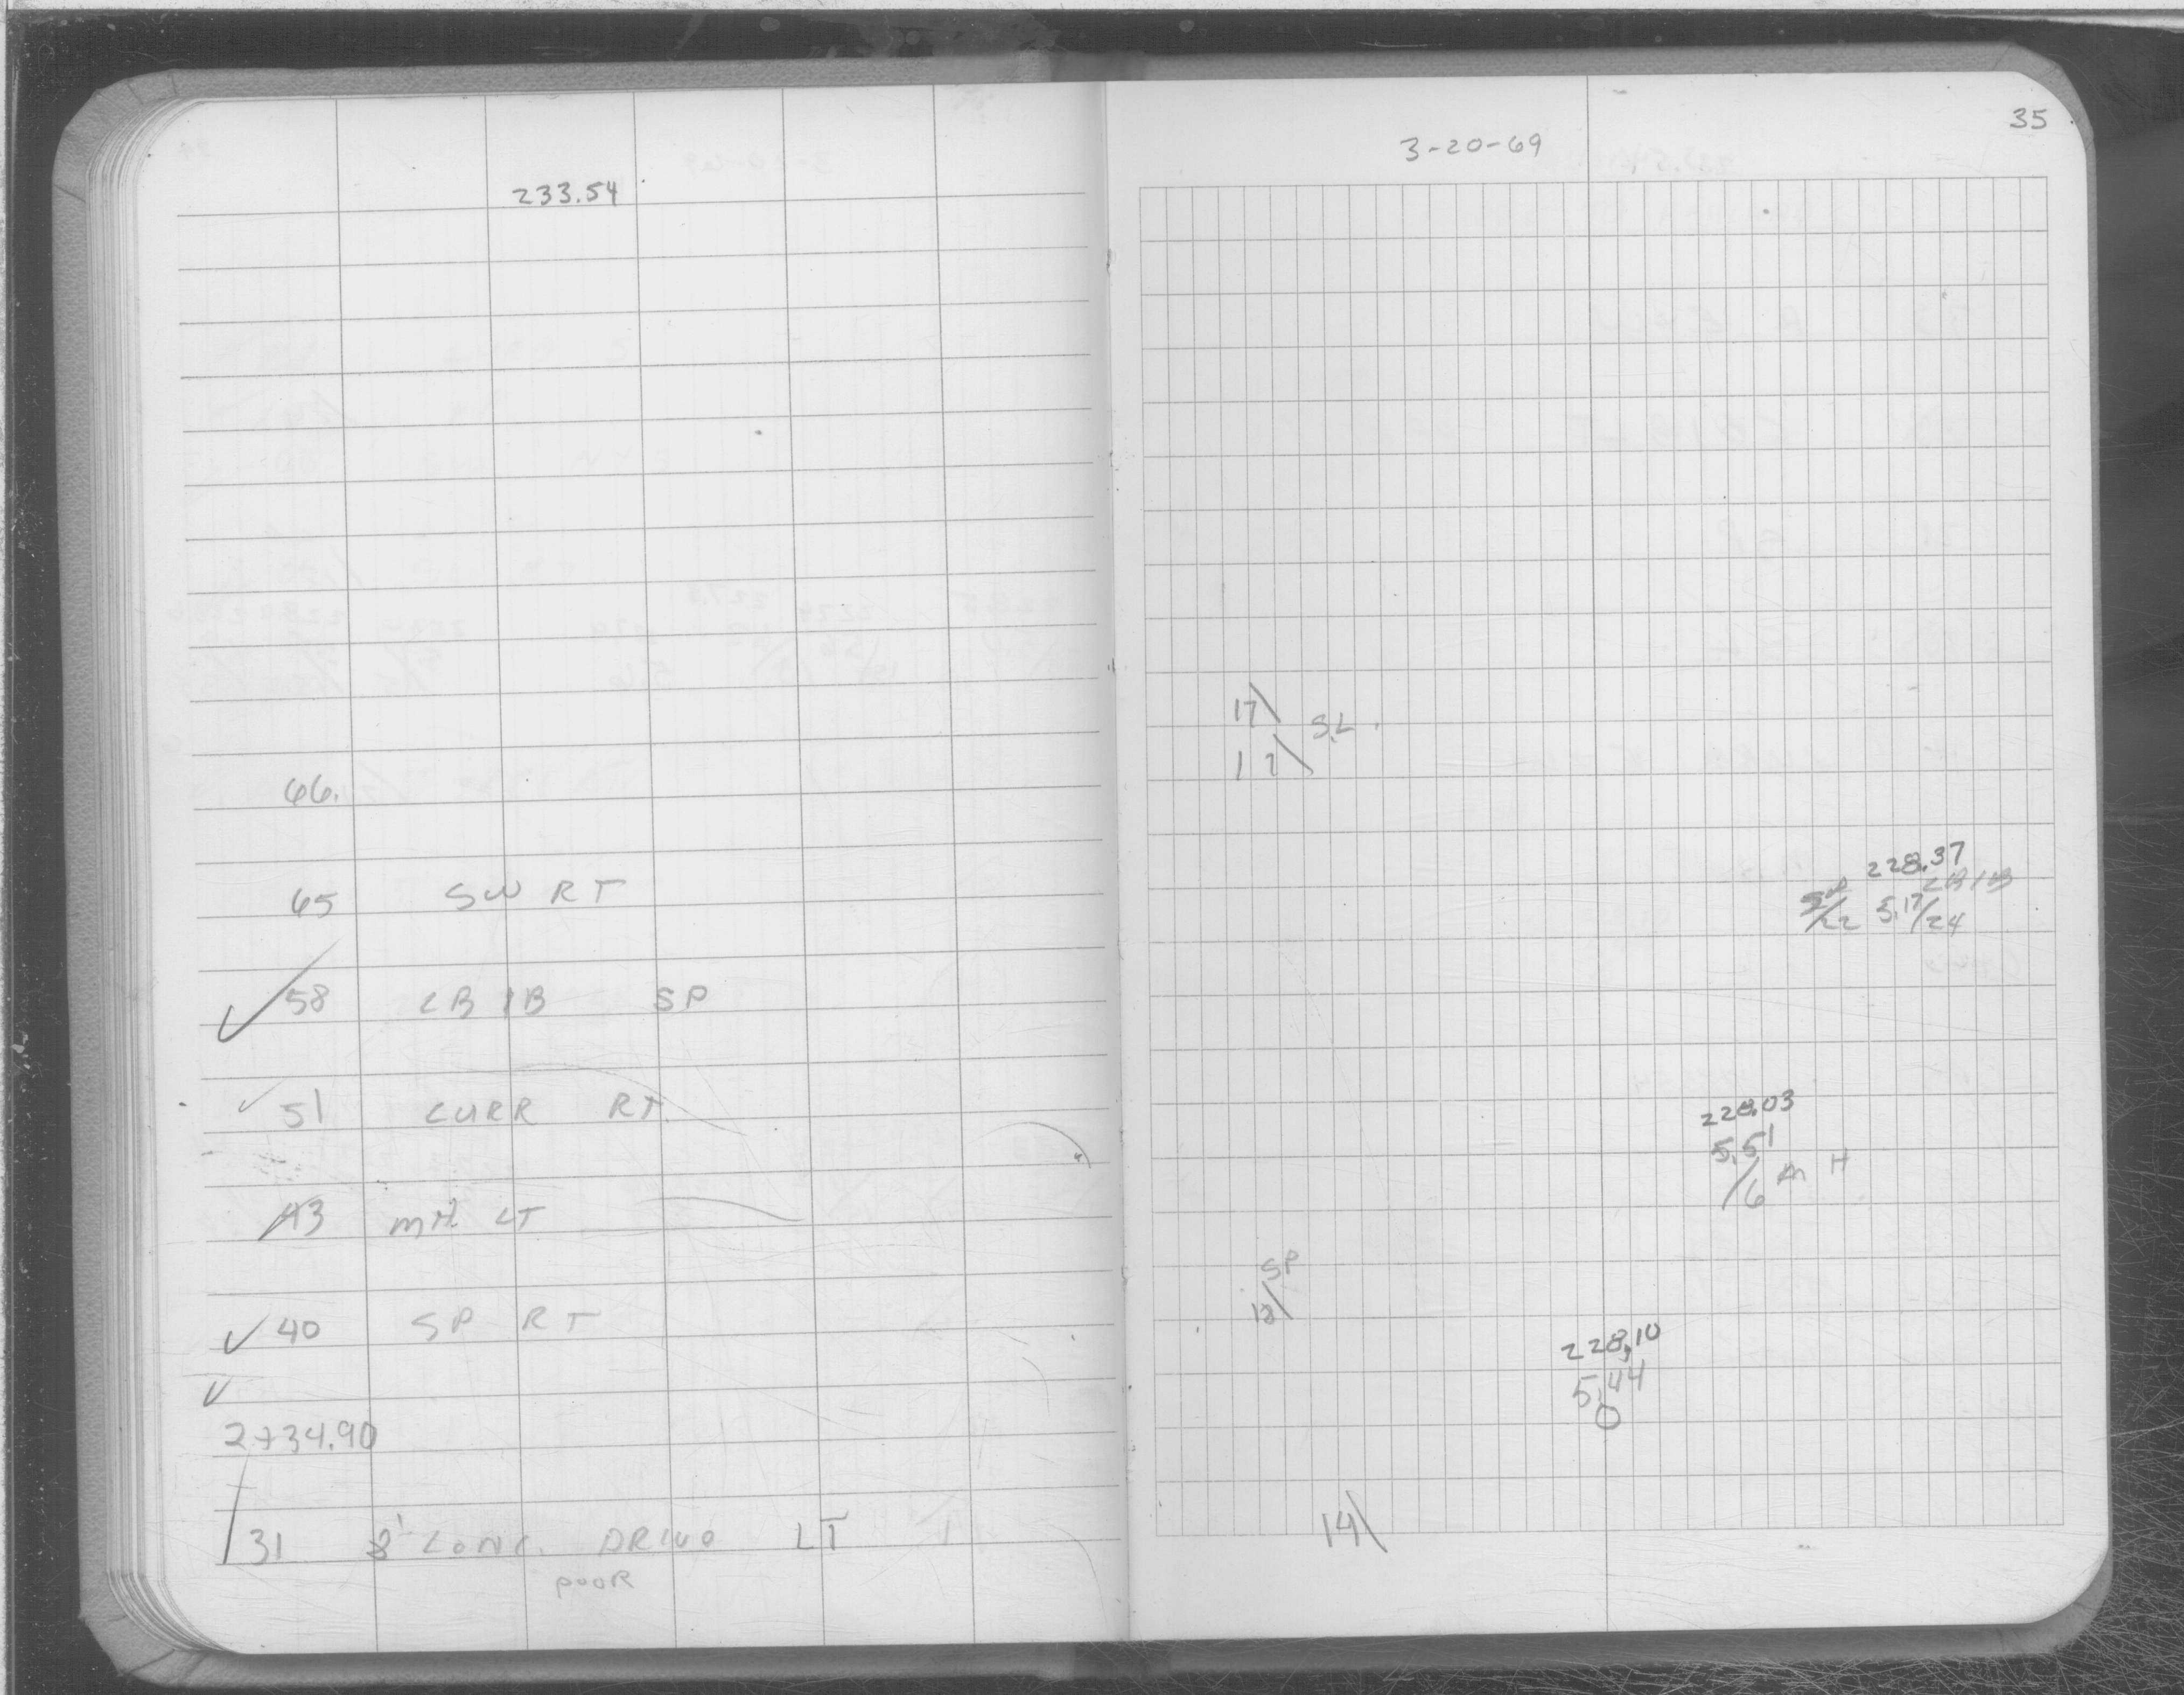 233.54
66.
65 SW RT
58 CB 1B SP
51 CURR RT.
43 MH. LT
40 SP RT
2+34.90
31 8' CONC. DRIVE LT
POOR
35
3-20-69
17\ S.L.
12\
228.37
CB 1B
/22 5.17/24
228.03
5.51
/6 M H
SP
18\
228.10
5.44
0
14\